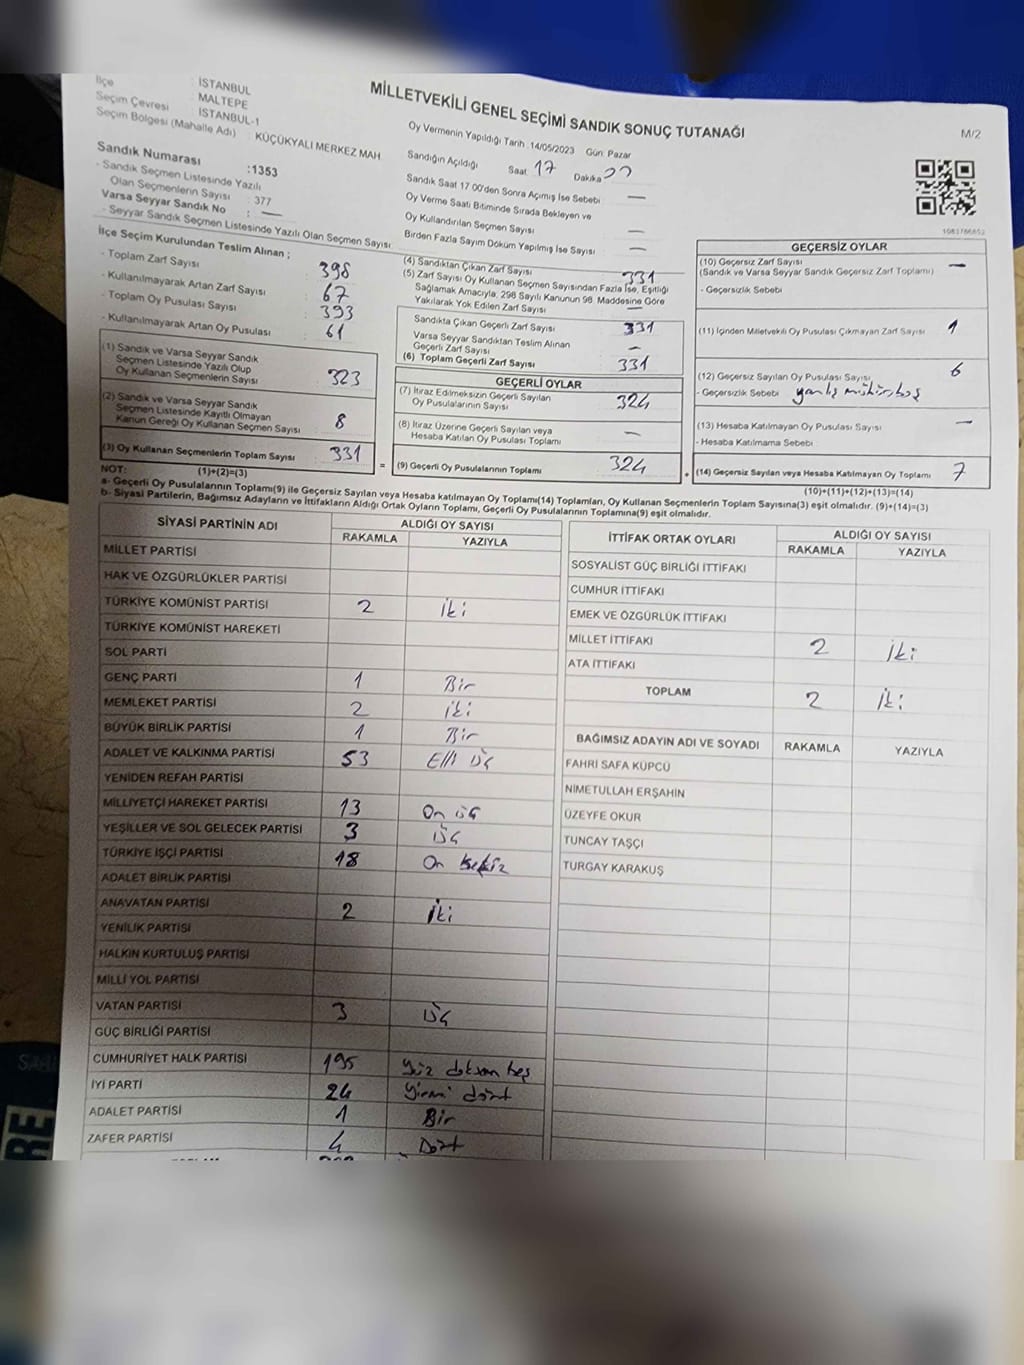 İlçe : İSTANBUL
Seçim Çevresi : MALTEPE
Seçim Bölgesi (Mahalle Adı) : İSTANBUL-1
: KÜÇÜKYALI MERKEZ MAH.
Sandık Numarası :1353
- Sandık Seçmen Listesinde Yazılı
Olan Seçmenlerin Sayısı : 377
Varsa Seyyar Sandık No : —
- Seyyar Sandık Seçmen Listesinde Yazılı Olan Seçmen Sayısı
MİLLETVEKİLİ GENEL SEÇİMİ SANDIK SONUÇ TUTANAĞI
M/2
Oy Vermenin Yapıldığı Tarih :14/05/2023 Gün: Pazar
Sandığın Açıldığı Saat 17 Dakika
Sandık Saat 17.00'den Sonra Açımış İse Sebebi —
Oy Verme Saati Bitiminde Sırada Bekleyen ve
Oy Kullandırılan Seçmen Sayısı —
Birden Fazla Sayım Döküm Yapılmış İse Sayısı —
İlçe Seçim Kurulundan Teslim Alınan ;
- Toplam Zarf Sayısı : 398
- Kullanılmayarak Artan Zarf Sayısı : 67
- Toplam Oy Pusulası Sayısı : 393
- Kullanılmayarak Artan Oy Pusulası : 61
(1) Sandık ve Varsa Seyyar Sandık
Seçmen Listesinde Yazılı Olup
Oy Kullanan Seçmenlerin Sayısı : 323
(2) Sandık ve Varsa Seyyar Sandık
Seçmen Listesinde Kayıtlı Olmayan
Kanun Gereği Oy Kullanan Seçmen Sayısı : 8
(3) Oy Kullanan Seçmenlerin Toplam Sayısı : 331
(1)+(2)=(3)
(4) Sandıktan Çıkan Zarf Sayısı 331
(5) Zarf Sayısı Oy Kullanan Seçmen Sayısından Fazla İse, Eşitliği
Sağlamak Amacıyla, 298 Sayılı Kanunun 98. Maddesine Göre
Yakılarak Yok Edilen Zarf Sayısı —
Sandıkta Çıkan Geçerli Zarf Sayısı : 331
Varsa Seyyar Sandıktan Teslim Alınan
Geçerli Zarf Sayısı —
(6) Toplam Geçerli Zarf Sayısı : 331
GEÇERLİ OYLAR
(7) İtiraz Edilmeksizin Geçerli Sayılan
Oy Pusulalarının Sayısı : 324
(8) İtiraz Üzerine Geçerli Sayılan veya
Hesaba Katılan Oy Pusulası Toplamı : —
= (9) Geçerli Oy Pusulalarının Toplamı : 324
GEÇERSİZ OYLAR
(10) Geçersiz Zarf Sayısı
(Sandık ve Varsa Seyyar Sandık Geçersiz Zarf Toplamı) —
- Geçersizlik Sebebi
(11) İçinden Milletvekili Oy Pusulası Çıkmayan Zarf Sayısı 1
(12) Geçersiz Sayılan Oy Pusulası Sayısı 6
- Geçersizlik Sebebi yanlış mühür, boş
(13) Hesaba Katılmayan Oy Pusulası Sayısı : —
- Hesaba Katılmama Sebebi
+ (14) Geçersiz Sayılan veya Hesaba Katılmayan Oy Toplamı : 7
(10)+(11)+(12)+(13)=(14)
NOT:
a- Geçerli Oy Pusulalarının Toplamı(9) ile Geçersiz Sayılan veya Hesaba katılmayan Oy Toplamı(14) Toplamları, Oy Kullanan Seçmenlerin Toplam Sayısına(3) eşit olmalıdır. (9)+(14)=(3)
b- Siyasi Partilerin, Bağımsız Adayların ve İttifakların Aldığı Ortak Oyların Toplamı, Geçerli Oy Pusulalarının Toplamına(9) eşit olmalıdır.
SİYASİ PARTİNİN ADI ALDIĞI OY SAYISI
RAKAMLA YAZIYLA
MİLLET PARTİSİ
HAK VE ÖZGÜRLÜKLER PARTİSİ
TÜRKİYE KOMÜNİST PARTİSİ 2 iki
TÜRKİYE KOMÜNİST HAREKETİ
SOL PARTİ
GENÇ PARTİ 1 Bir
MEMLEKET PARTİSİ 2 iki
BÜYÜK BİRLİK PARTİSİ 1 Bir
ADALET VE KALKINMA PARTİSİ 53 Elli üç
YENİDEN REFAH PARTİSİ
MİLLİYETÇİ HAREKET PARTİSİ 13 On üç
YEŞİLLER VE SOL GELECEK PARTİSİ 3 üç
TÜRKİYE İŞÇİ PARTİSİ 18 On sekiz
ADALET BİRLİK PARTİSİ
ANAVATAN PARTİSİ 2 iki
YENİLİK PARTİSİ
HALKIN KURTULUŞ PARTİSİ
MİLLİ YOL PARTİSİ
VATAN PARTİSİ 3 üç
GÜÇ BİRLİĞİ PARTİSİ
CUMHURİYET HALK PARTİSİ 195 yüz doksan beş
İYİ PARTİ 24 Yirmi dört
ADALET PARTİSİ 1 Bir
ZAFER PARTİSİ 4 Dört
İTTİFAK ORTAK OYLARI ALDIĞI OY SAYISI
RAKAMLA YAZIYLA
SOSYALİST GÜÇ BİRLİĞİ İTTİFAKI
CUMHUR İTTİFAKI
EMEK VE ÖZGÜRLÜK İTTİFAKI
MİLLET İTTİFAKI 2 iki
ATA İTTİFAKI
TOPLAM 2 iki
BAĞIMSIZ ADAYIN ADI VE SOYADI RAKAMLA YAZIYLA
FAHRİ SAFA KÜPCÜ
NİMETULLAH ERŞAHİN
ÜZEYFE OKUR
TUNCAY TAŞÇI
TURGAY KARAKUŞ
RE